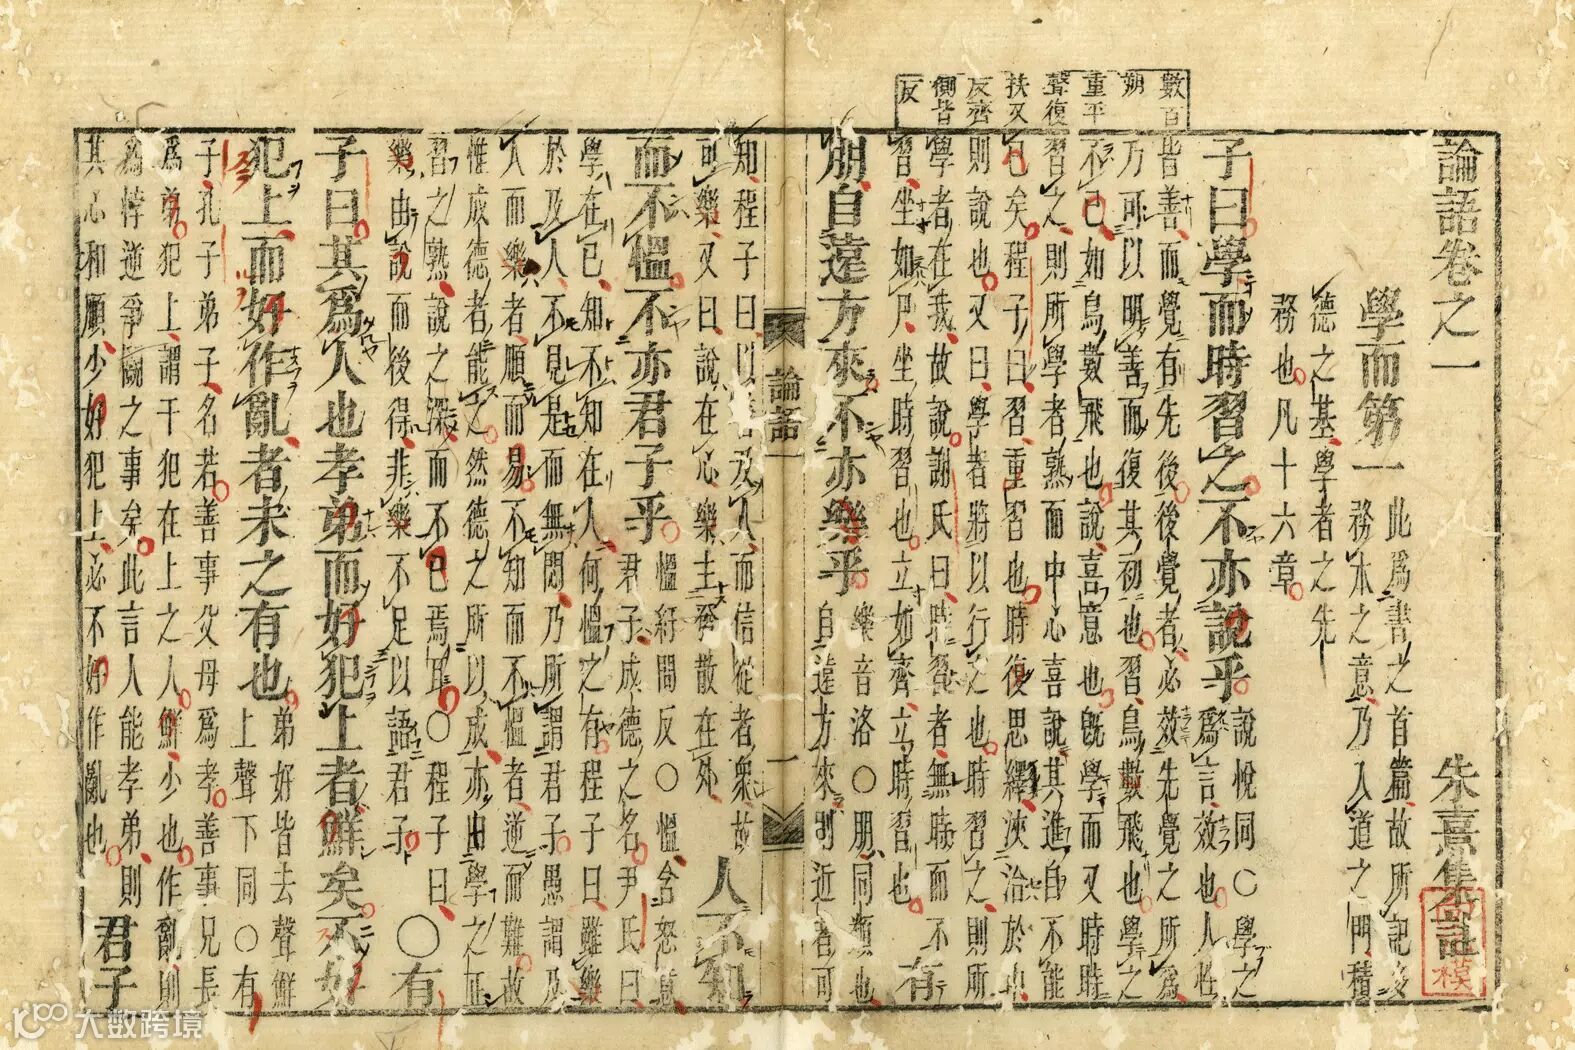 數百
朔
重平
聲復
扶又
反齊
側皆
反
論語卷之一 朱熹集註
學而第一 此爲書之首篇故所記多
務本之意乃入道之門積
德之基學者之先
務也凡十六章
子曰學而時習之不亦說乎 說悅同○學之
爲言效也人性
皆善而覺有先後後覺者必效先覺之所爲
乃可以明善而復其初也習鳥數飛也學之
不已如鳥數飛也說喜意也旣學而又時時
習之則所學者熟而中心喜說其進自不能
已矣程子曰習重習也時復思繹浹洽於中
則說也又曰學者將以行之也時習之則所
學者在我故說謝氏曰時習者無時而不
習坐如尸坐時習也立如齊立時習也 有
朋自遠方來不亦樂乎 樂音洛○朋同類也
自遠方來則近者可
論語一 一
知程子曰以善及人而信從者衆故
可樂又曰說在心樂主發散在外 人不知
而不慍不亦君子乎 慍紆問反○慍含怒意
君子成德之名尹氏曰
學在己知不知在人何慍之有程子曰雖樂
於及人不見是而無悶乃所謂君子愚謂及
人而樂者順而易不知而不慍者逆而難故
惟成德者能之然德之所以成亦由學之正
習之熟說之深而不已焉耳○程子曰
樂由說而後得非樂不足以語君子 ○有
子曰其爲人也孝弟而好犯上者鮮矣不好
犯上而好作亂者未之有也 弟好皆去聲鮮
上聲下同○有
子孔子弟子名若善事父母爲孝善事兄長
爲弟犯上謂干犯在上之人鮮少也作亂則
爲悖逆爭鬭之事矣此言人能孝弟則
其心和順少好犯上必不好作亂也 君子
大数跨境